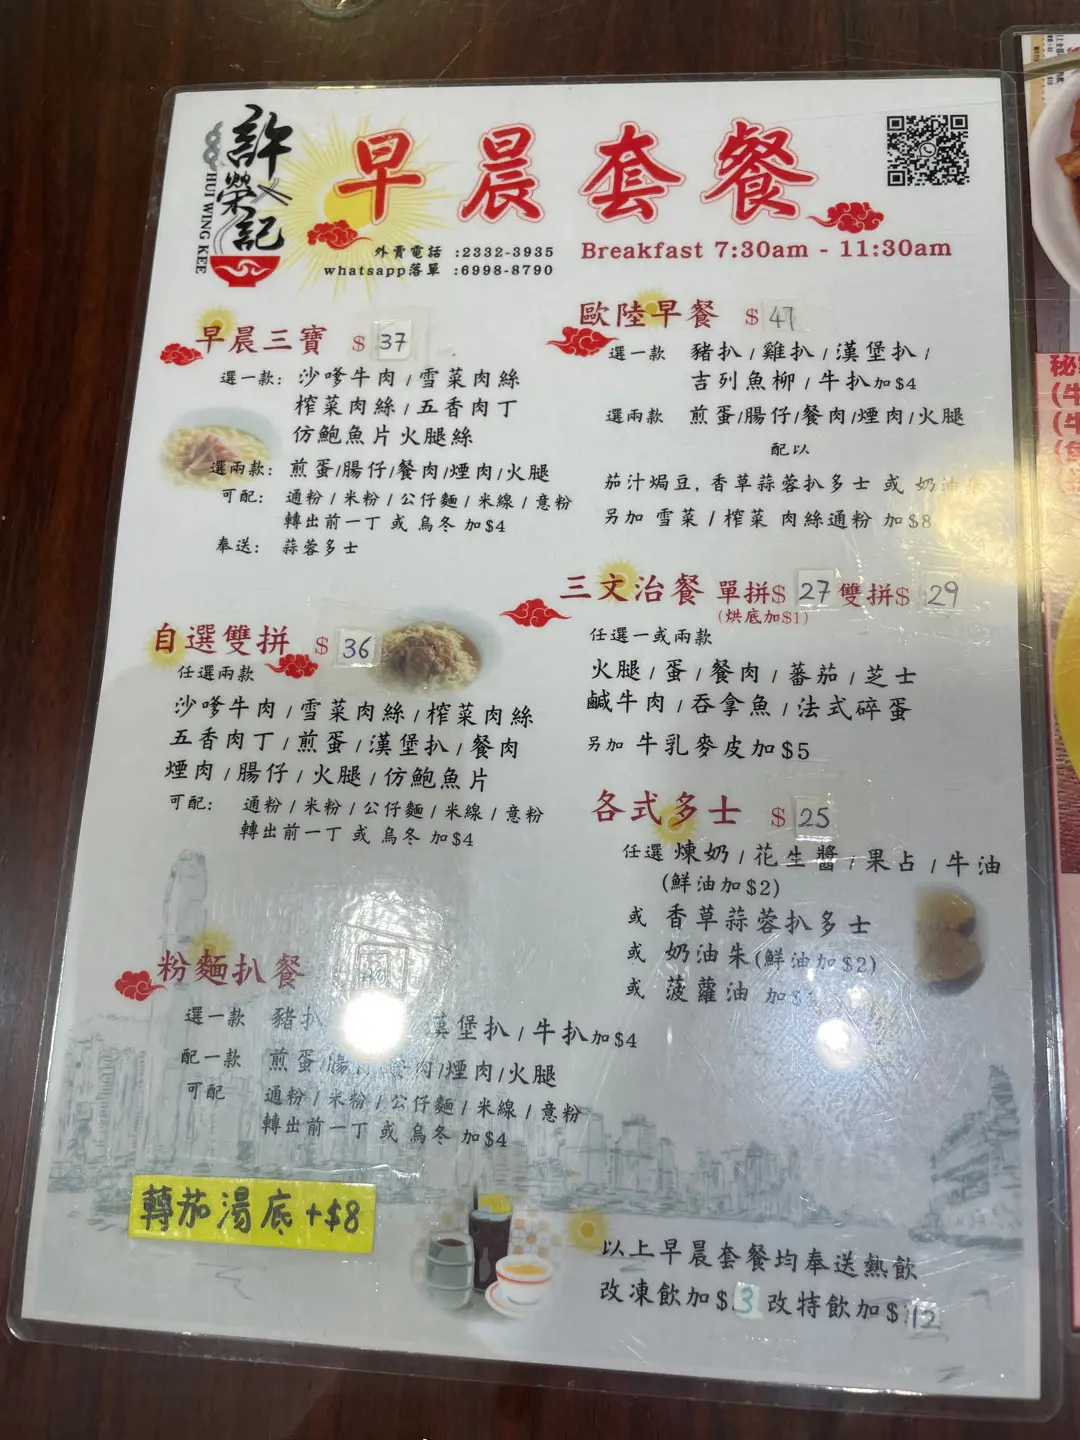 許榮記
HUI WING KEE
早晨套餐
外賣電話 :2332-3935
whatsapp落單 :6998-8790
Breakfast 7:30am - 11:30am
早晨三寶 $ 37
選一款: 沙嗲牛肉 / 雪菜肉絲
榨菜肉絲 / 五香肉丁
仿鮑魚片火腿絲
選兩款: 煎蛋/腸仔/餐肉/煙肉/火腿
可配: 通粉 / 米粉 / 公仔麵 / 米線 / 意粉
轉出前一丁 或 烏冬 加$4
奉送: 蒜蓉多士
自選雙拼 $ 36
任選兩款
沙嗲牛肉 / 雪菜肉絲 / 榨菜肉絲
五香肉丁 / 煎蛋 / 漢堡扒 / 餐肉
煙肉 / 腸仔 / 火腿 / 仿鮑魚片
可配: 通粉 / 米粉 / 公仔麵 / 米線 / 意粉
轉出前一丁 或 烏冬 加$4
粉麵扒餐
選一款 豬扒 漢堡扒 / 牛扒加$4
配一款 煎蛋/腸 餐肉/煙肉/火腿
可配 通粉 / 米粉 / 公仔麵 / 米線 / 意粉
轉出前一丁 或 烏冬 加$4
轉茄湯底+$8
歐陸早餐 $ 47
選一款 豬扒 / 雞扒 / 漢堡扒 /
吉列魚柳 / 牛扒加$4
選兩款 煎蛋/腸仔/餐肉/煙肉/火腿
配以
茄汁焗豆, 香草蒜蓉扒多士 或 奶油
另加 雪菜 / 榨菜 肉絲通粉 加$8
三文治餐 單拼$ 27 雙拼$ 29
(烘底加$1)
任選一或兩款
火腿 / 蛋 / 餐肉 / 蕃茄 / 芝士
鹹牛肉 / 吞拿魚 / 法式碎蛋
另加 牛乳麥皮加$5
各式多士 $ 25
任選 煉奶 / 花生醬 / 果占 / 牛油
(鮮油加$2)
或 香草蒜蓉扒多士
或 奶油朱(鮮油加$2)
或 菠蘿油 加$
以上早晨套餐均奉送熱飲
改凍飲加$3 改特飲加$12